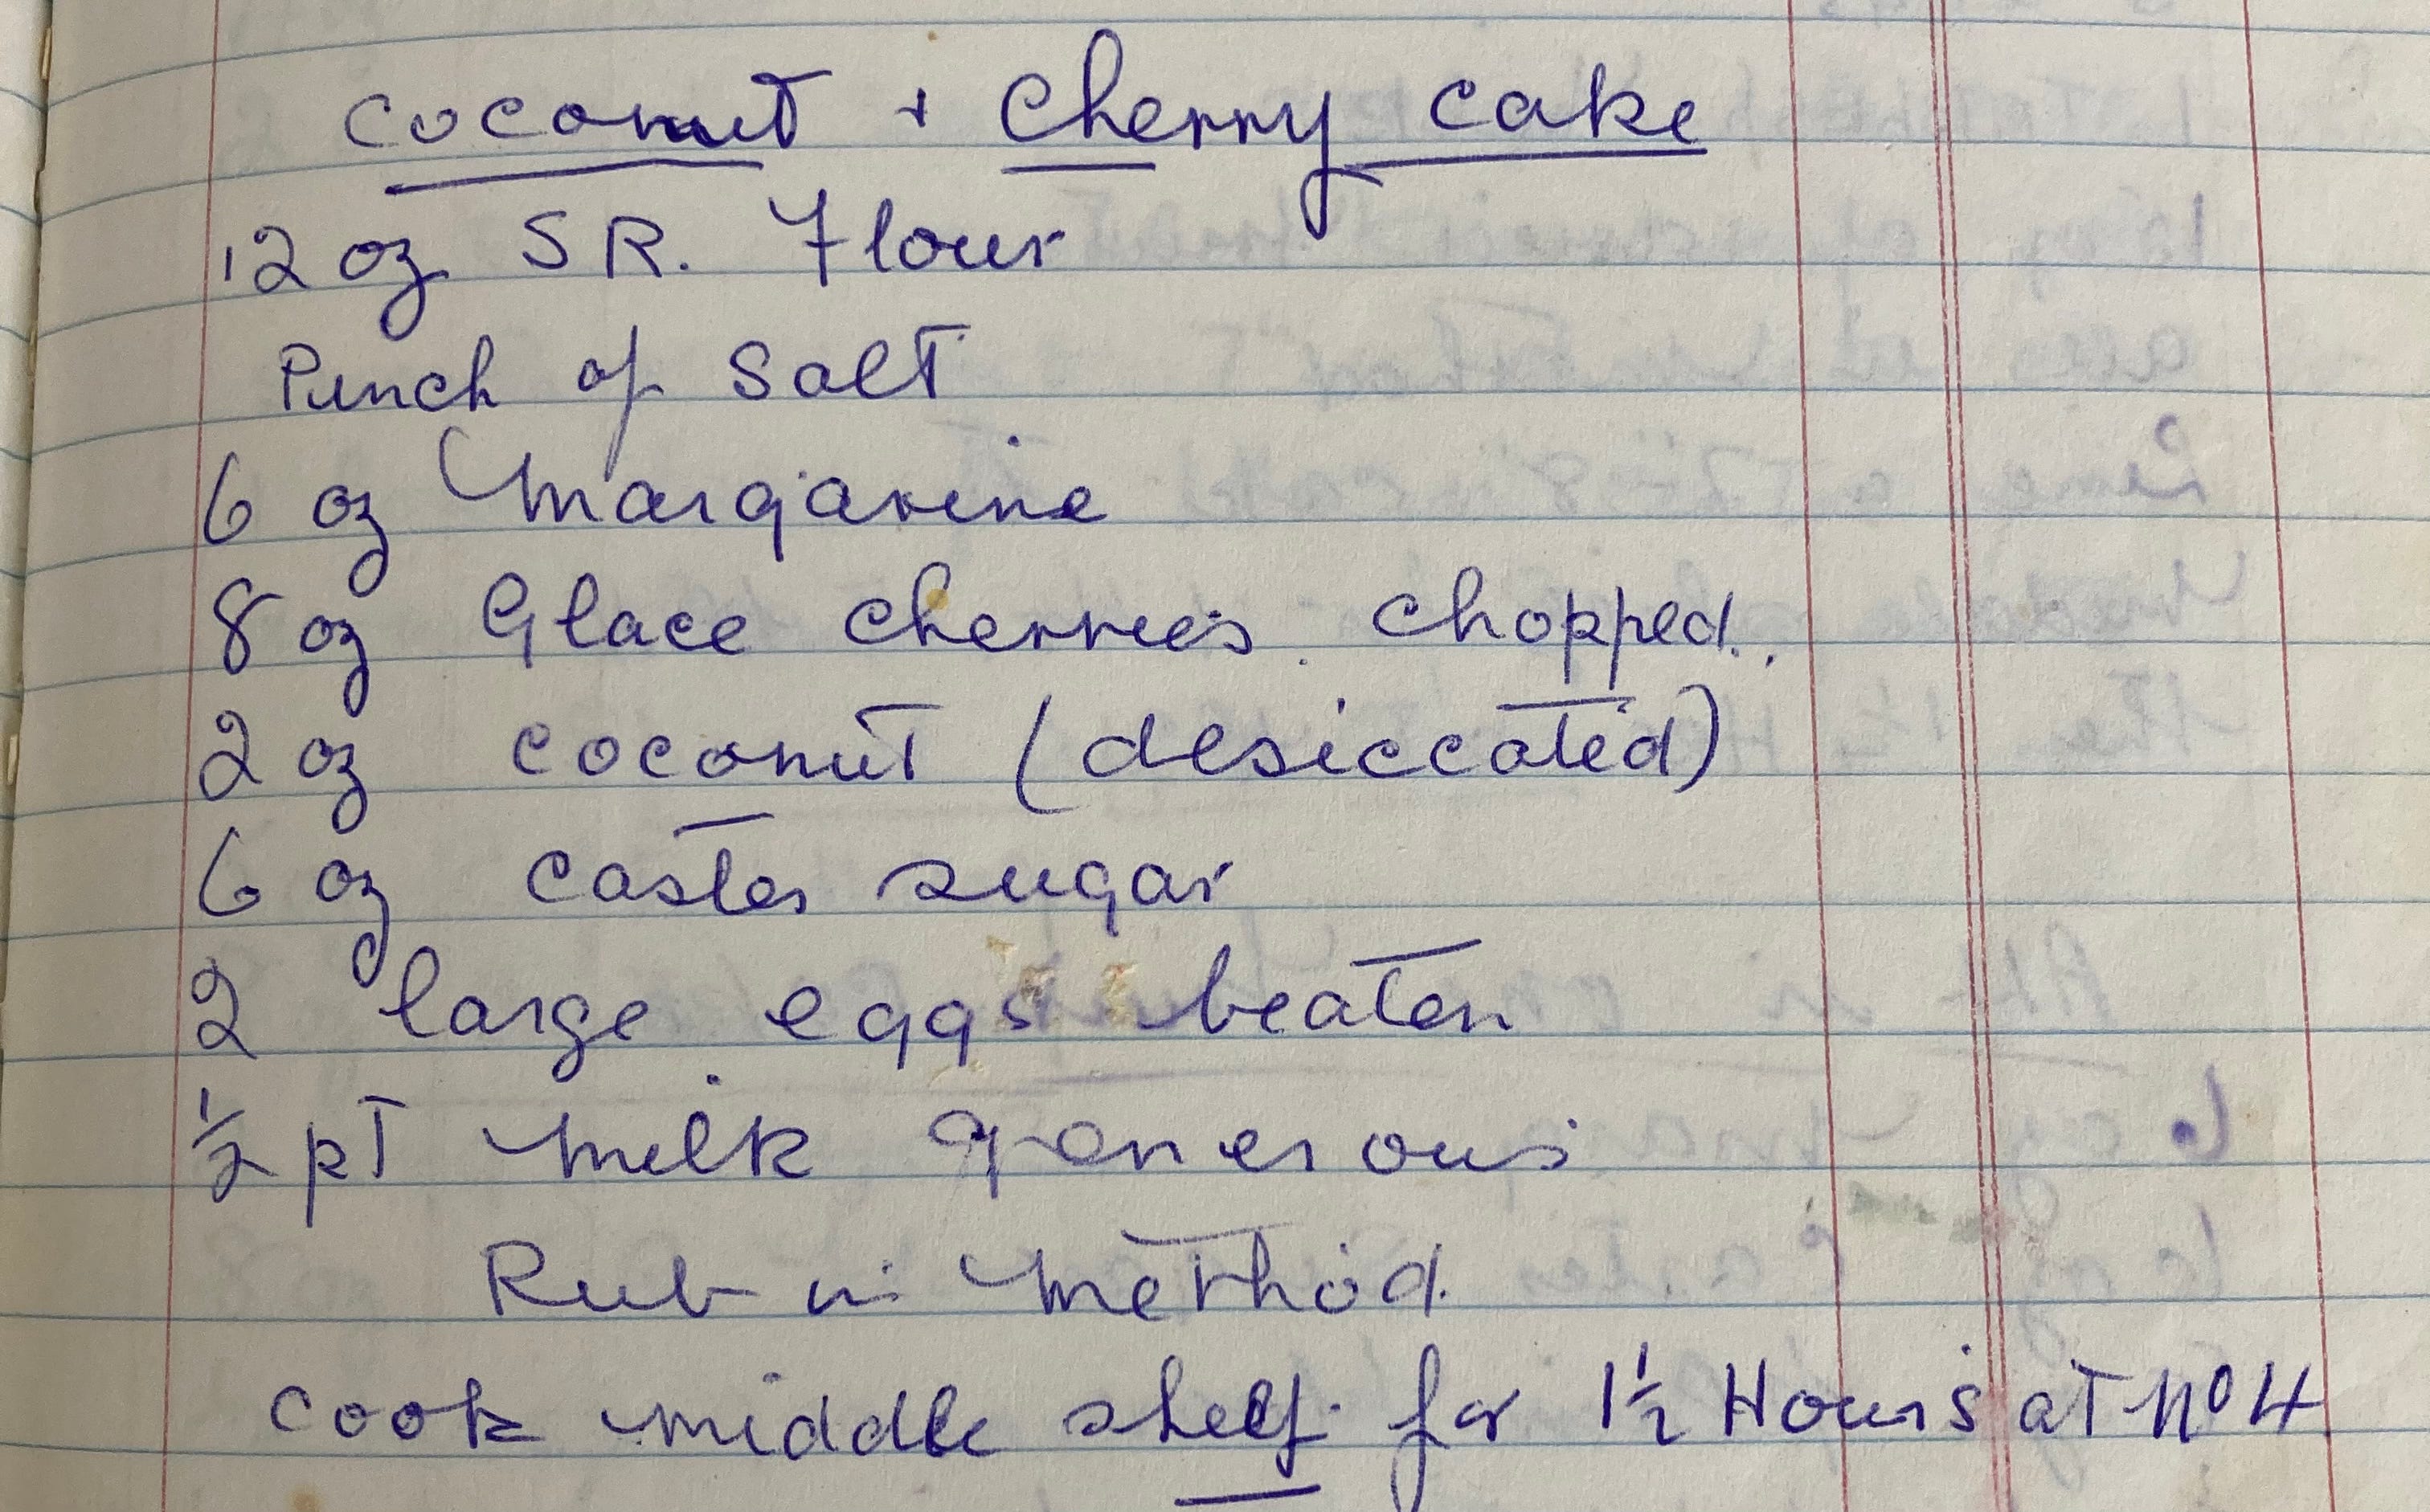 coconut + Cherry cake
12 oz SR. Flour
Pinch of Salt
6 oz Margarine
8 oz Glace cherries. chopped.
2 oz coconut (desiccated)
6 oz caster sugar
2 large eggs beaten
½ pt Milk generous
Rub in Method.
Cook middle shelf for 1½ Hours at No 4